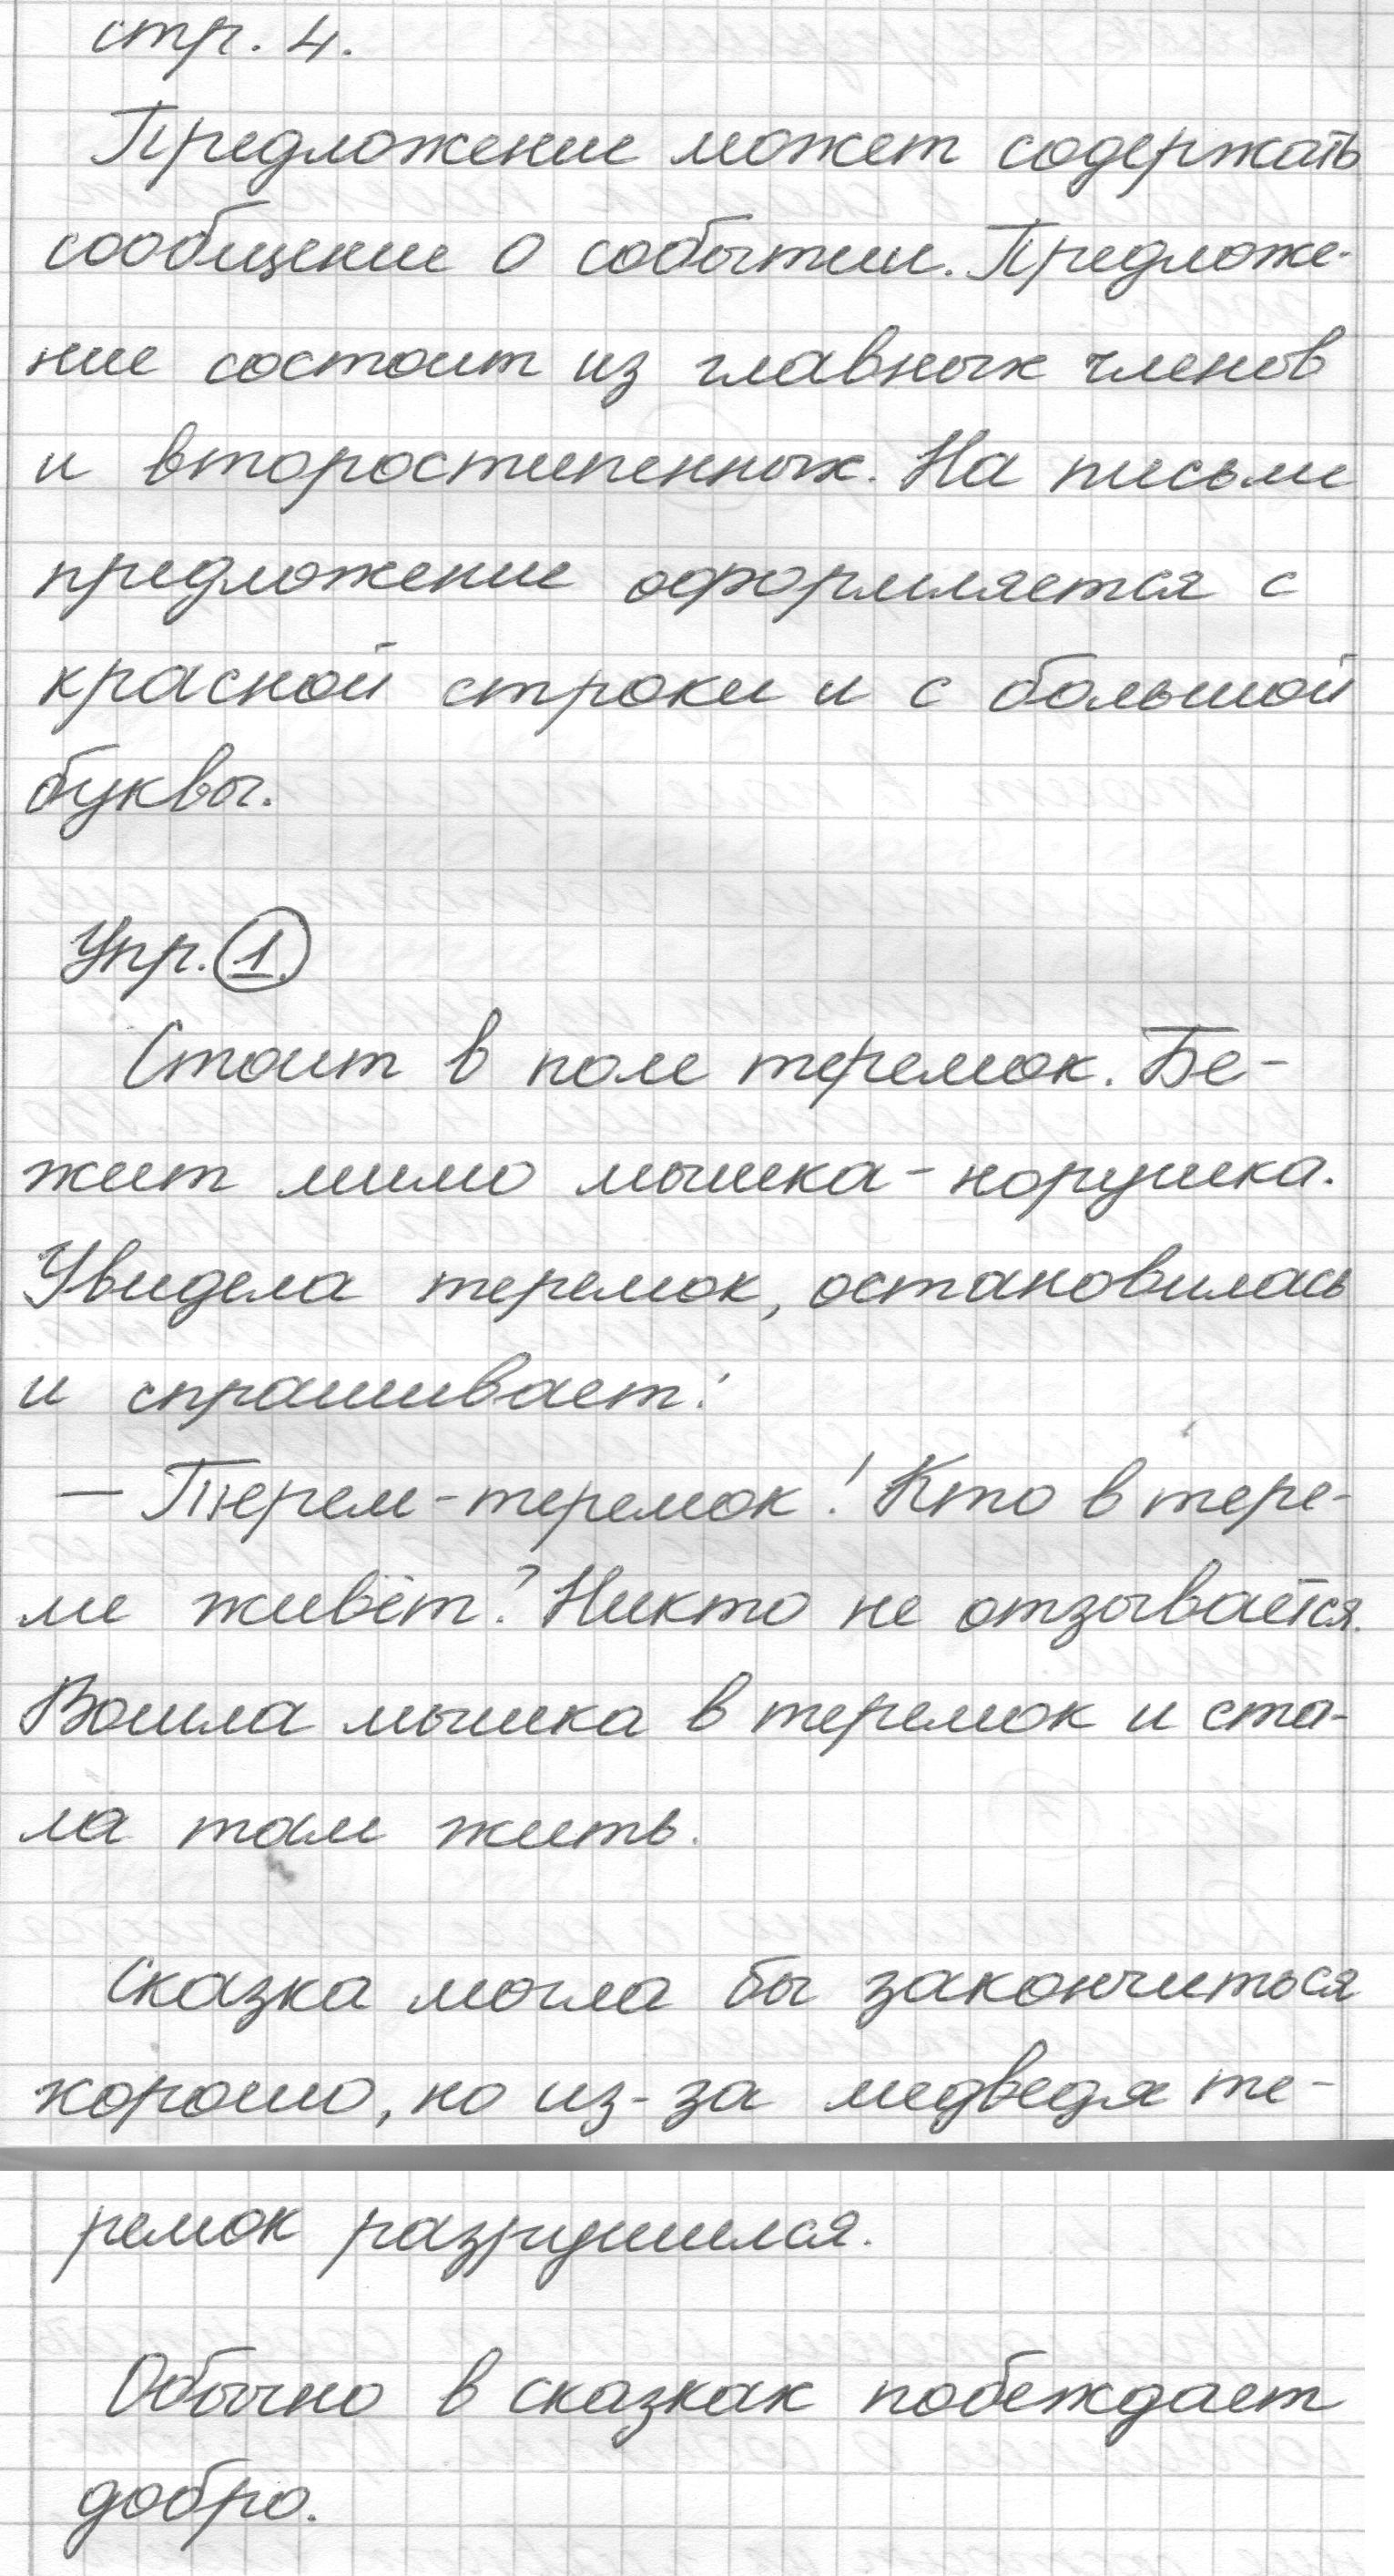 стр. 4.
Предложение может содержать
сообщение о событии. Предложе-
ние состоит из главных членов
и второстепенных. На письме
предложение оформляется с
красной строки и с большой
буквы.
Упр. 1.
Стоит в поле теремок. Бе-
жит мимо мышка-норушка.
Увидела теремок, остановилась
и спрашивает:
— Терем-теремок! Кто в тере-
ме живёт? Никто не отзывается.
Вошла мышка в теремок и ста-
ла там жить.
Сказка могла бы закончиться
хорошо, но из-за медведя те-
ремок разрушился.
Обычно в сказках побеждает
добро.